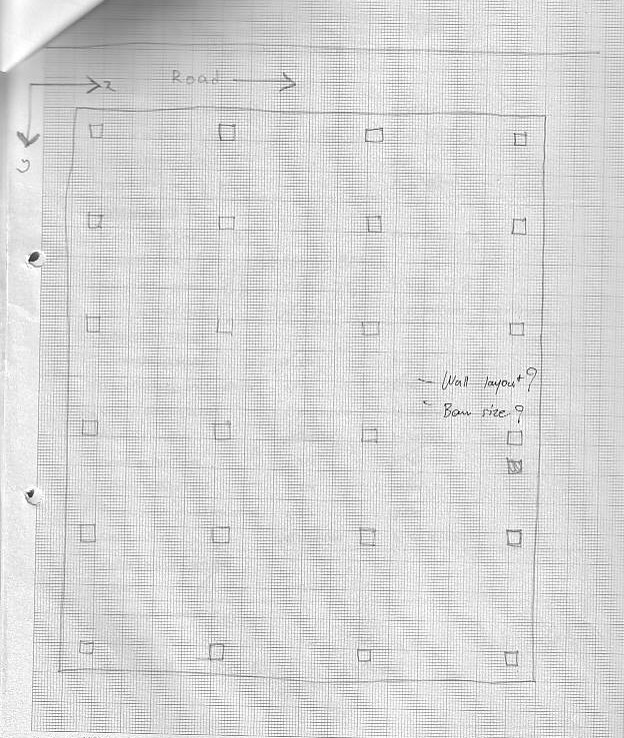 x
Road
y
- Wall layout?
- Beam size?